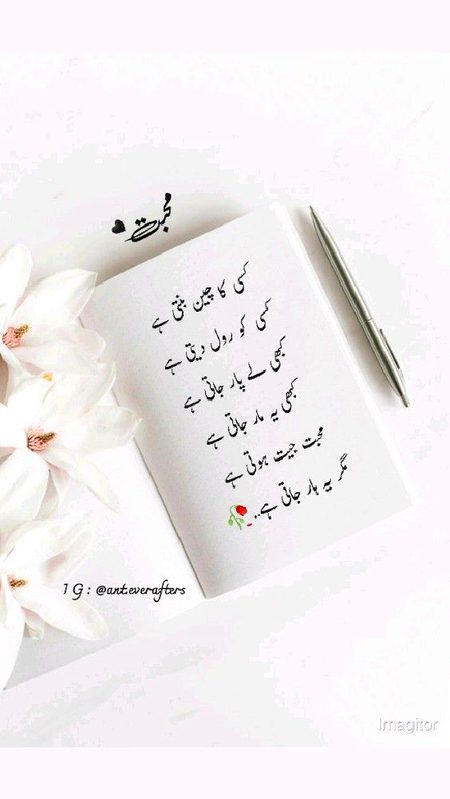 محبت
کسی کا چین بنتی ہے
کسی کو رول دیتی ہے
کبھی لے پار جاتی ہے
کبھی یہ مار جاتی ہے
محبت جیت ہوتی ہے
مگر یہ ہار جاتی ہے..
IG : @ant.everafters
Imagitor